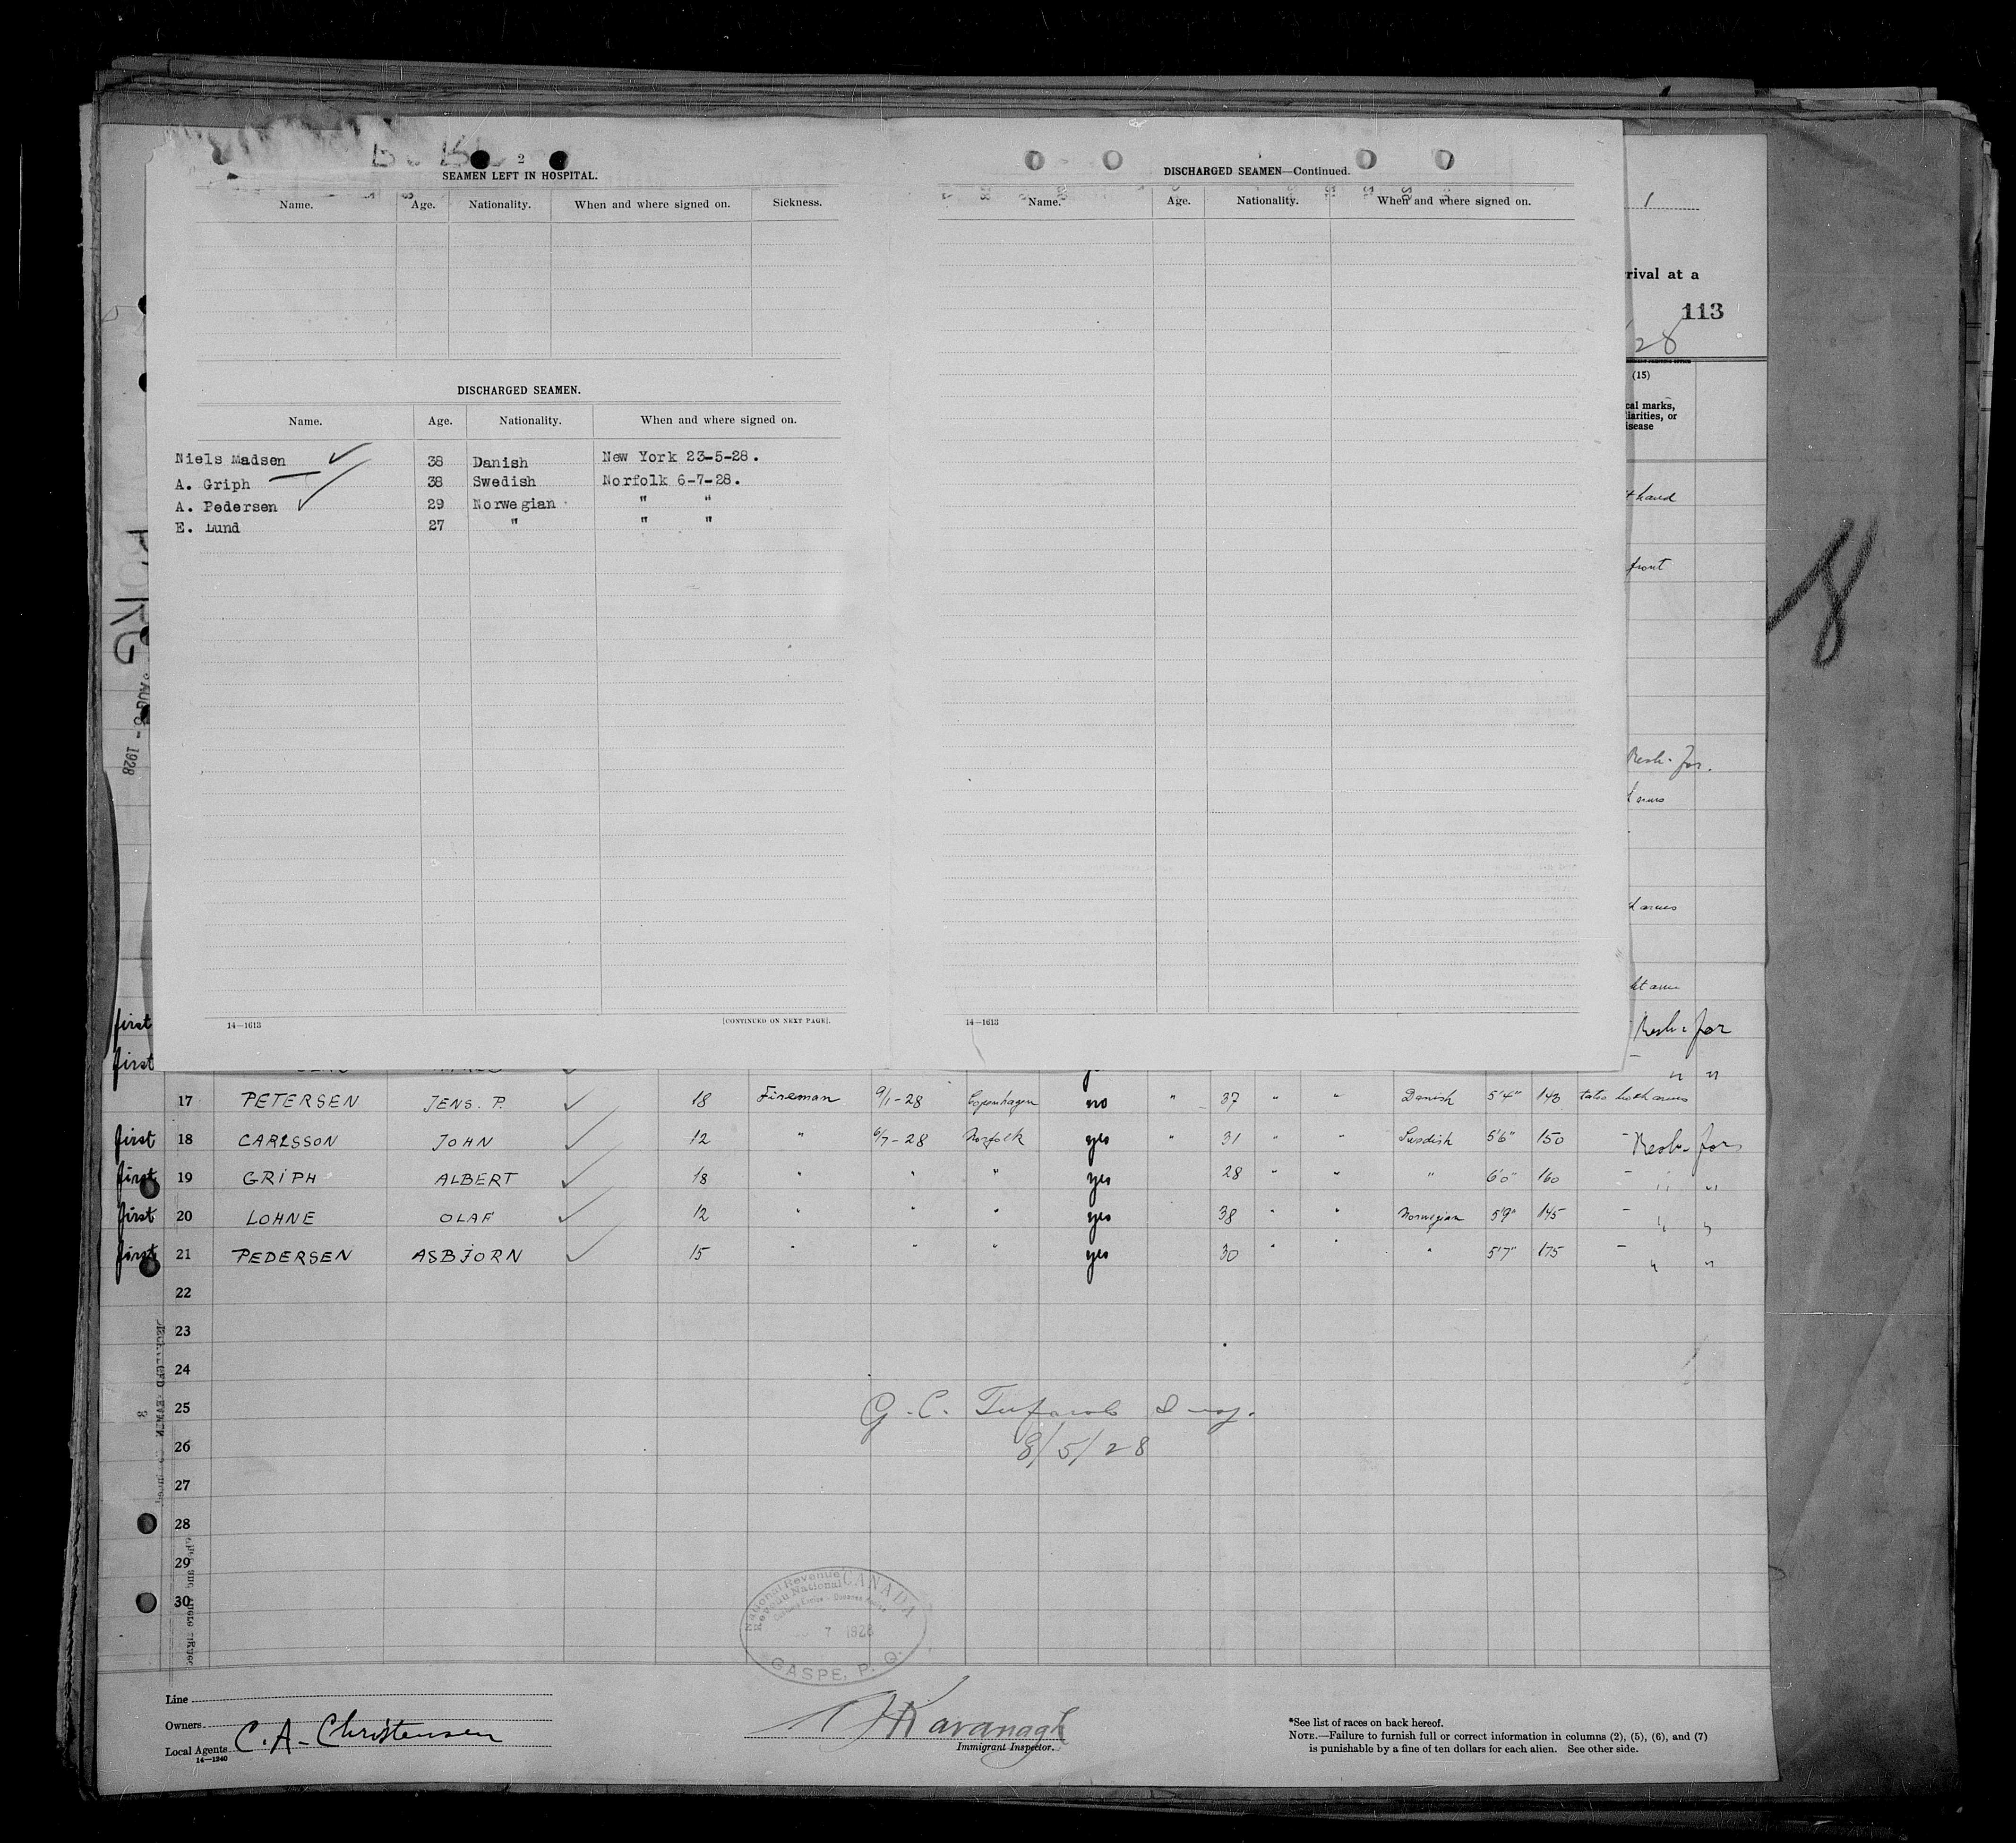 2
SEAMEN LEFT IN HOSPITAL.
Name. Age. Nationality. When and where signed on. Sickness.
DISCHARGED SEAMEN.
Name. Age. Nationality. When and where signed on.
Niels Madsen 38 Danish New York 23-5-28.
A. Griph 38 Swedish Norfolk 6-7-28.
A. Pedersen 29 Norwegian " "
E. Lund 27 " " "
14—1613 [CONTINUED ON NEXT PAGE].
DISCHARGED SEAMEN—Continued.
Name. Age. Nationality. When and where signed on.
14—1613
1
rival at a
113
28
(15)
cal marks,
liarities, or
isease
t hand
front
Resh. for.
d arms
ht arm
8
AUG 8 - 1928
first Resh. for
first " "
17 PETERSEN JENS. P. 18 Fireman 9/1-28 Copenhagen no " 37 " " Danish 5'4" 143 tatoo both arms
first 18 CARLSSON JOHN 12 " 6/7-28 Norfolk yes " 31 " " Swedish 5'6" 150 Resh. for
first 19 GRIPH ALBERT 18 " " " yes 28 " " " 6'0" 160 – " "
first 20 LOHNE OLAF 12 " " " yes 38 " " Norwegian 5'9" 145 – " "
first 21 PEDERSEN ASBJORN 15 " " " yes 30 " " " 5'7" 175 – " "
22
23
24
25
26
27
28
29
30
G. C. Insp.
8/5/28
National Revenue CANADA
Revenu National
7 1928
GASPE, P. Q.
Line
Owners
Local Agents C. A. Christensen
14—1240
Kavanagh
Immigrant Inspector.
*See list of races on back hereof.
NOTE.—Failure to furnish full or correct information in columns (2), (5), (6), and (7)
is punishable by a fine of ten dollars for each alien. See other side.